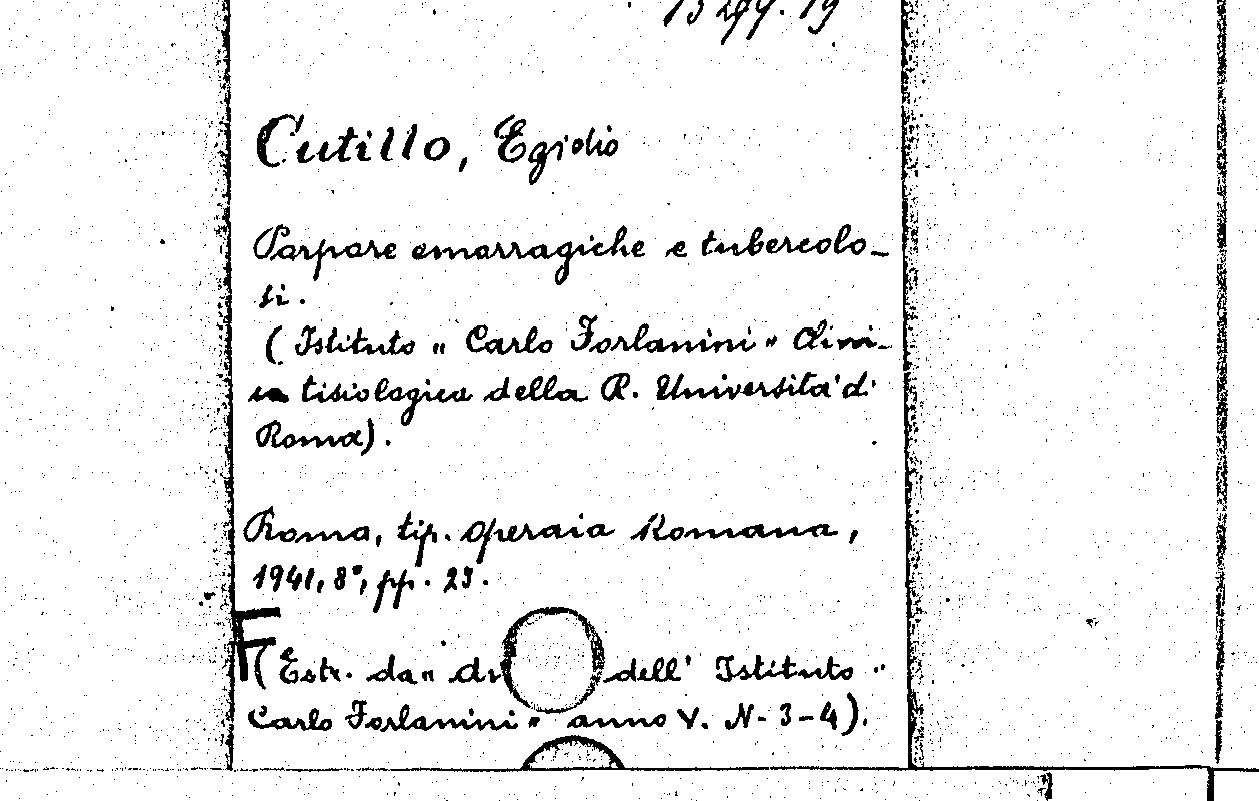 Cutillo, Egidio
Porpore emorragiche e tubercolo-
si.
( Istituto " Carlo Forlanini " Clini-
ca tisiologica della R. Università di
Roma).
Roma, tip. Operaia Romana,
1941, 8°, pp. 23.
F
( Estr. da " dell' Istituto "
Carlo Forlanini " anno V. N- 3-4).